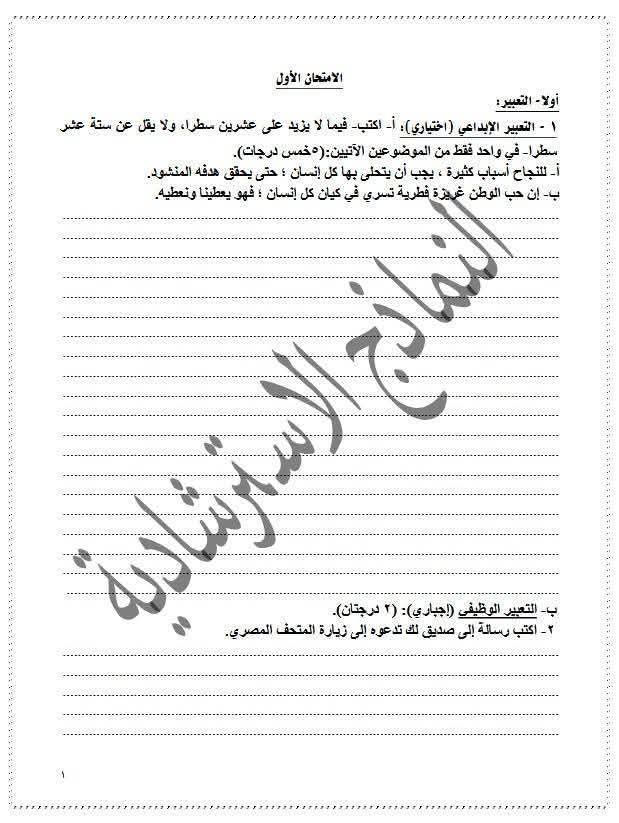 الامتحان الأول
أولا- التعبير:
١ - التعبير الإبداعي (اختياري): أ- اكتب- فيما لا يزيد على عشرين سطرا، ولا يقل عن ستة عشر
سطرا- في واحد فقط من الموضوعين الآتيين:(٥خمس درجات).
أ- للنجاح أسباب كثيرة ، يجب أن يتحلى بها كل إنسان ؛ حتى يحقق هدفه المنشود.
ب- إن حب الوطن غريزة فطرية تسري في كيان كل إنسان ؛ فهو يعطينا ونعطيه.
النماذج الاسترشادية
ب- التعبير الوظيفي (إجباري): (٢ درجتان).
٢- اكتب رسالة إلى صديق لك تدعوه إلى زيارة المتحف المصري.
١